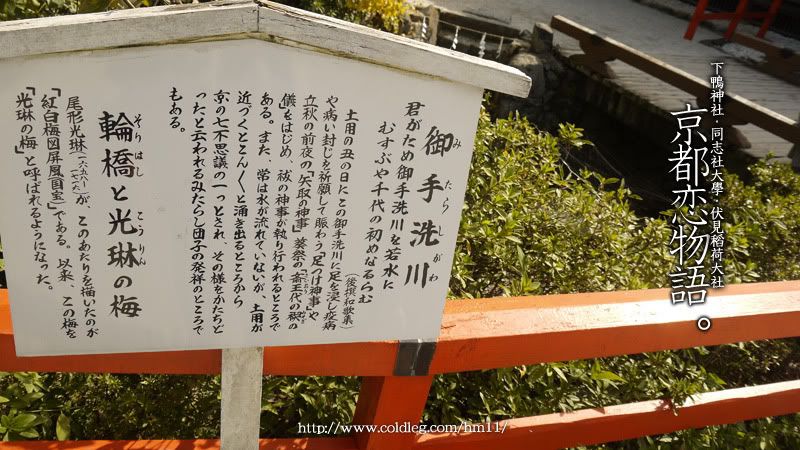 御手洗川
みたらしがわ
君がため御手洗川を若水に
むすぶや千代の初めなるらむ
(後撰和歌集)
土用の丑の日にこの御手洗川に足を浸し疫病
や病い封じを祈願して賑わう「足つけ神事」や
立秋の前夜の「矢取の神事」葵祭の「斎王代の禊の
儀」をはじめ、祓の神事が執り行われるところで
ある。また、常は水が流れていないが、土用が
近づくとこんこんと涌き出るところから
京の七不思議の一つとされ、その様をかたちど
ったと云われるみたらし団子の発祥のところで
もある。
輪橋と光琳の梅
そりはし
こうりん
尾形光琳(一六五八〜一七一六)が、このあたりを描いたのが
「紅白梅図屏風」(国宝)である。以来、この梅を
「光琳の梅」と呼ばれるようになった。
下鴨神社・同志社大學・伏見稻荷大社
京都恋物語。
http://www.coldleg.com/hm11/